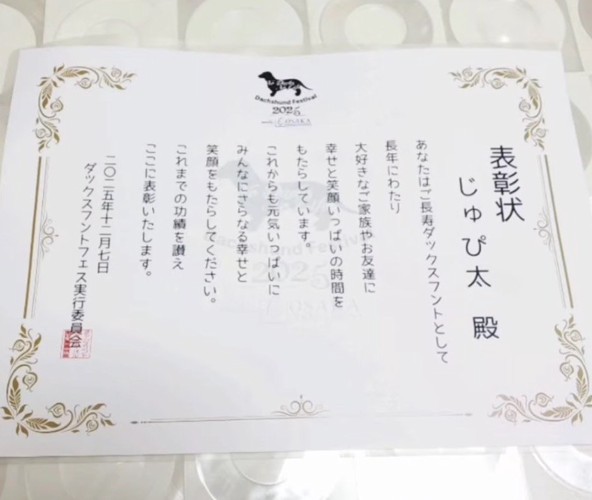 Dachshund Festival
2025
OSAKA
表彰状
じゅぴ太 殿
あなたはご長寿ダックスフントとして
長年にわたり
大好きなご家族やお友達に
幸せと笑顔いっぱいの時間を
もたらしています。
これからも元気いっぱいに
みんなにさらなる幸せと
笑顔をもたらしてください。
これまでの功績を讃え
ここに表彰いたします。
二〇二五年十二月七日
ダックスフントフェス実行委員会
Dachshund Festival
2025
OSAKA